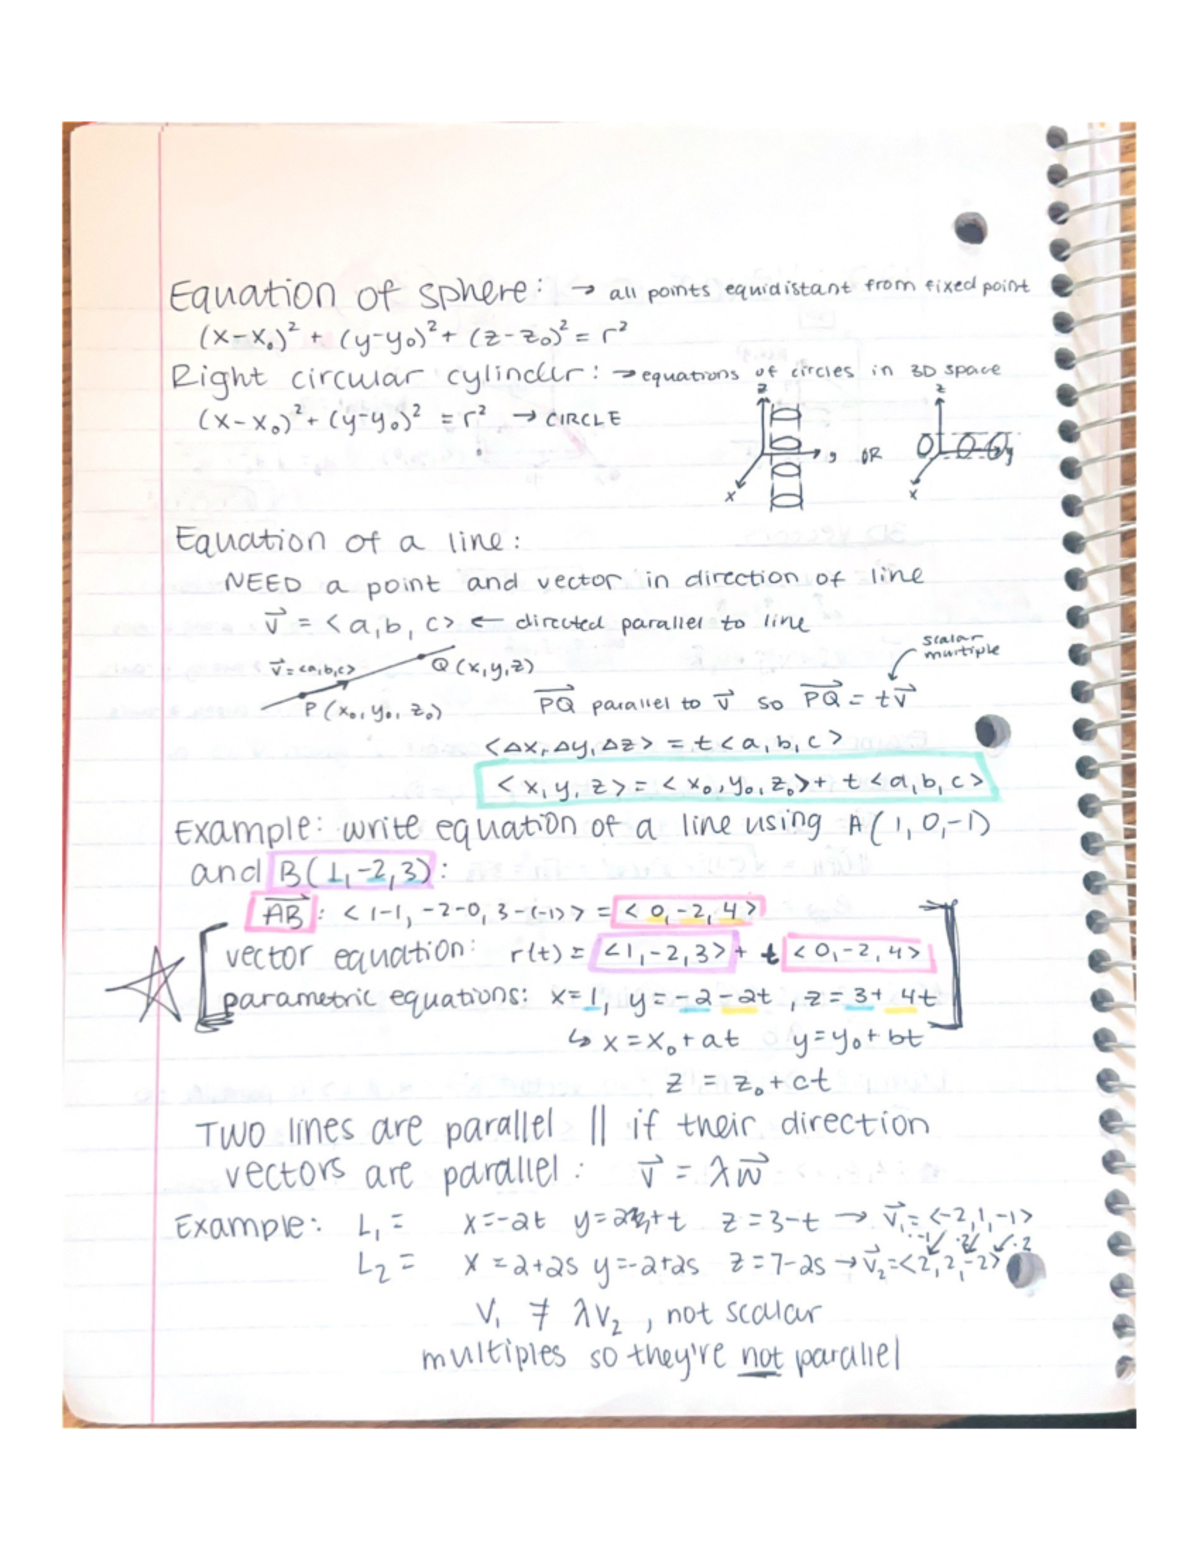 Equation of sphere: → all points equidistant from fixed point
(x-x₀)² + (y-y₀)² + (z-z₀)² = r²
Right circular cylinder: → equations of circles in 3D space
(x-x₀)² + (y-y₀)² = r² → CIRCLE
z z
y OR y
x x
Equation of a line:
NEED a point and vector in direction of line
v⃗ = <a, b, c> ← directed parallel to line
scalar
multiple
v⃗ = <a,b,c> Q (x,y,z)
P (x₀, y₀, z₀) PQ⃗ parallel to v⃗ so PQ⃗ = tv⃗
<Δx, Δy, Δz> = t<a, b, c>
<x, y, z> = <x₀, y₀, z₀> + t<a, b, c>
Example: write equation of a line using A(1, 0, -1)
and B(1, -2, 3):
AB⃗: <1-1, -2-0, 3-(-1)> = <0, -2, 4>
vector equation: r(t) = <1, -2, 3> + t <0, -2, 4>
parametric equations: x=1, y=-2-2t, z=3+4t
↳ x=x₀+at y=y₀+bt
z = z₀+ct
TWO lines are parallel || if their direction
vectors are parallel: v⃗ = λw⃗
Example: L₁ = x=-2t z=3-t → v⃗₁=<-2,1,-1>
·-1 ·2 ·2
L₂ = x=2+2s y=-2+2s z=7-2s → v⃗₂=<2,2,-2>
v₁ ≠ λv₂, not scalar
multiples so they're not parallel